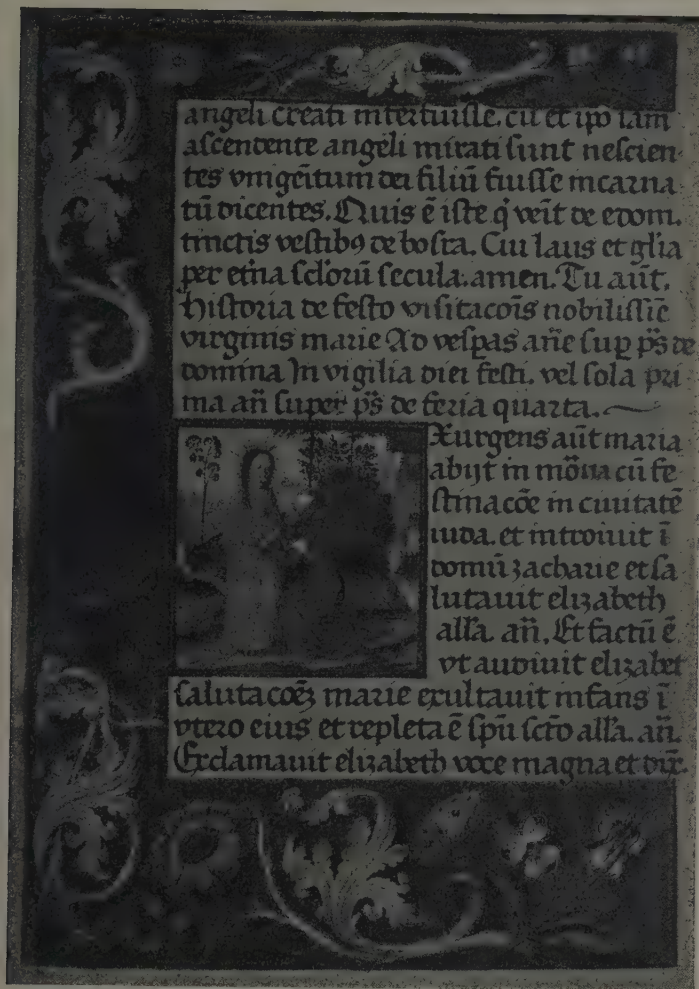 angeli creati interfuisse. cū et ip̄o iam
ascendente angeli mirati sunt nescien-
tes vnigēitum dei filiū fuisse incarna-
tū dicentes. Quis ē iste q̇ veīt de edom.
tinctis vestibꝯ de bosra. Cui laus et glīa
per etn̄a sclōrū secula. amen. Tu aūt.
historia de festo visitacōis nobilissīe
virginis marie Ad vesꝑas añe suꝑ ps̄ de
domina In vigilia diei festi. vel sola pri-
ma añ super ps̄ de feria quarta.
Exurgens aūt maria
abijt in mōtana cū fe
stinacōe in ciuitatē
iuda. et introiuit ī
domū zacharie et sa
lutauit elizabeth
all'a. añ. Et factū ē.
vt audiuit elizabet
salutacōeꝫ marie exultauit infans ī
vtero eius et repleta ē sp̄u sc̄to all'a. añ.
Exclamauit elizabeth voce magna et dix̄.